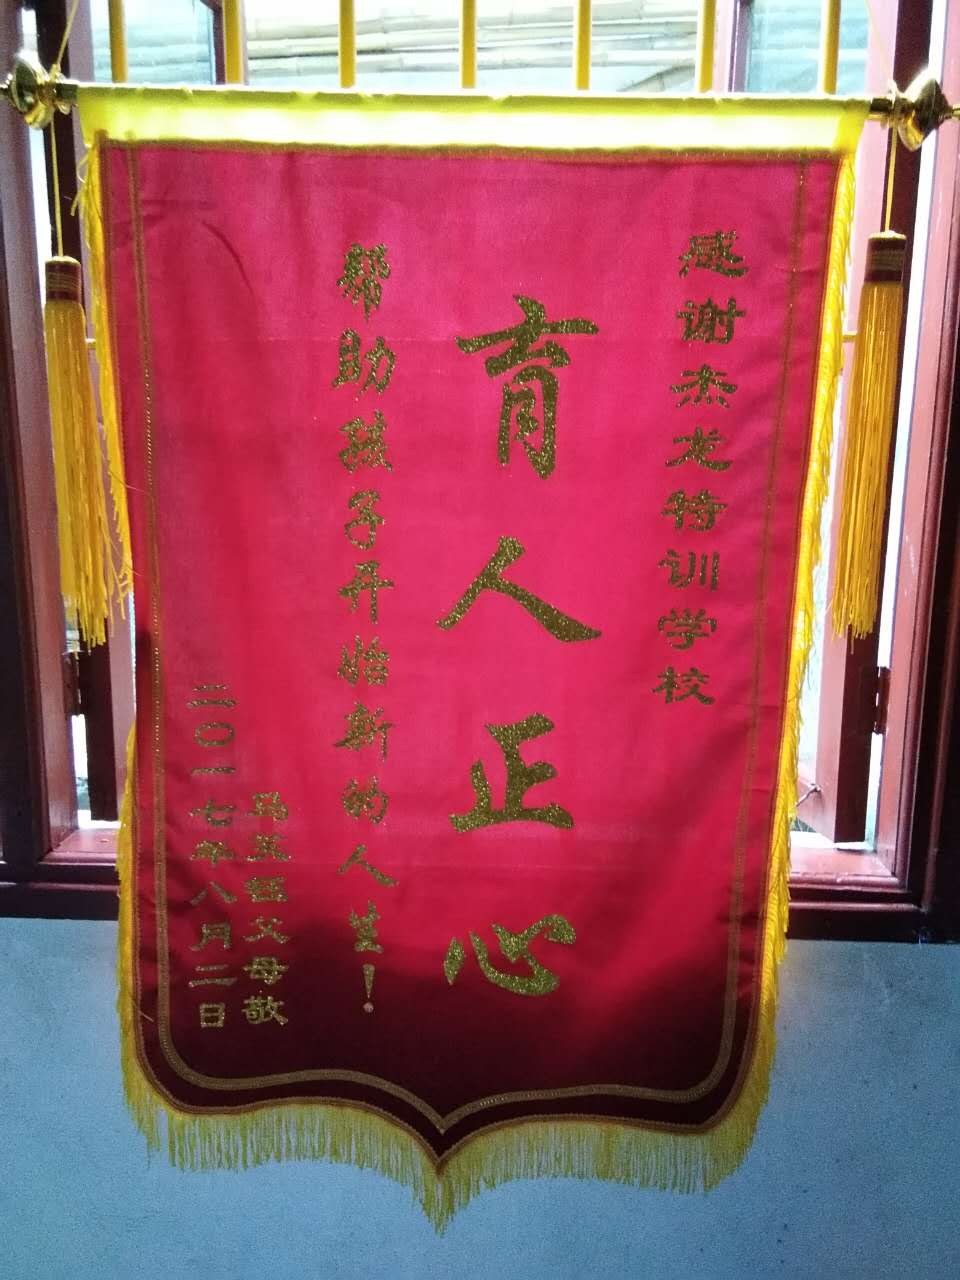 感谢杰龙特训学校
育人正心
帮助孩子开始新的人生！
马玉钰父母敬
二〇一七年八月二日